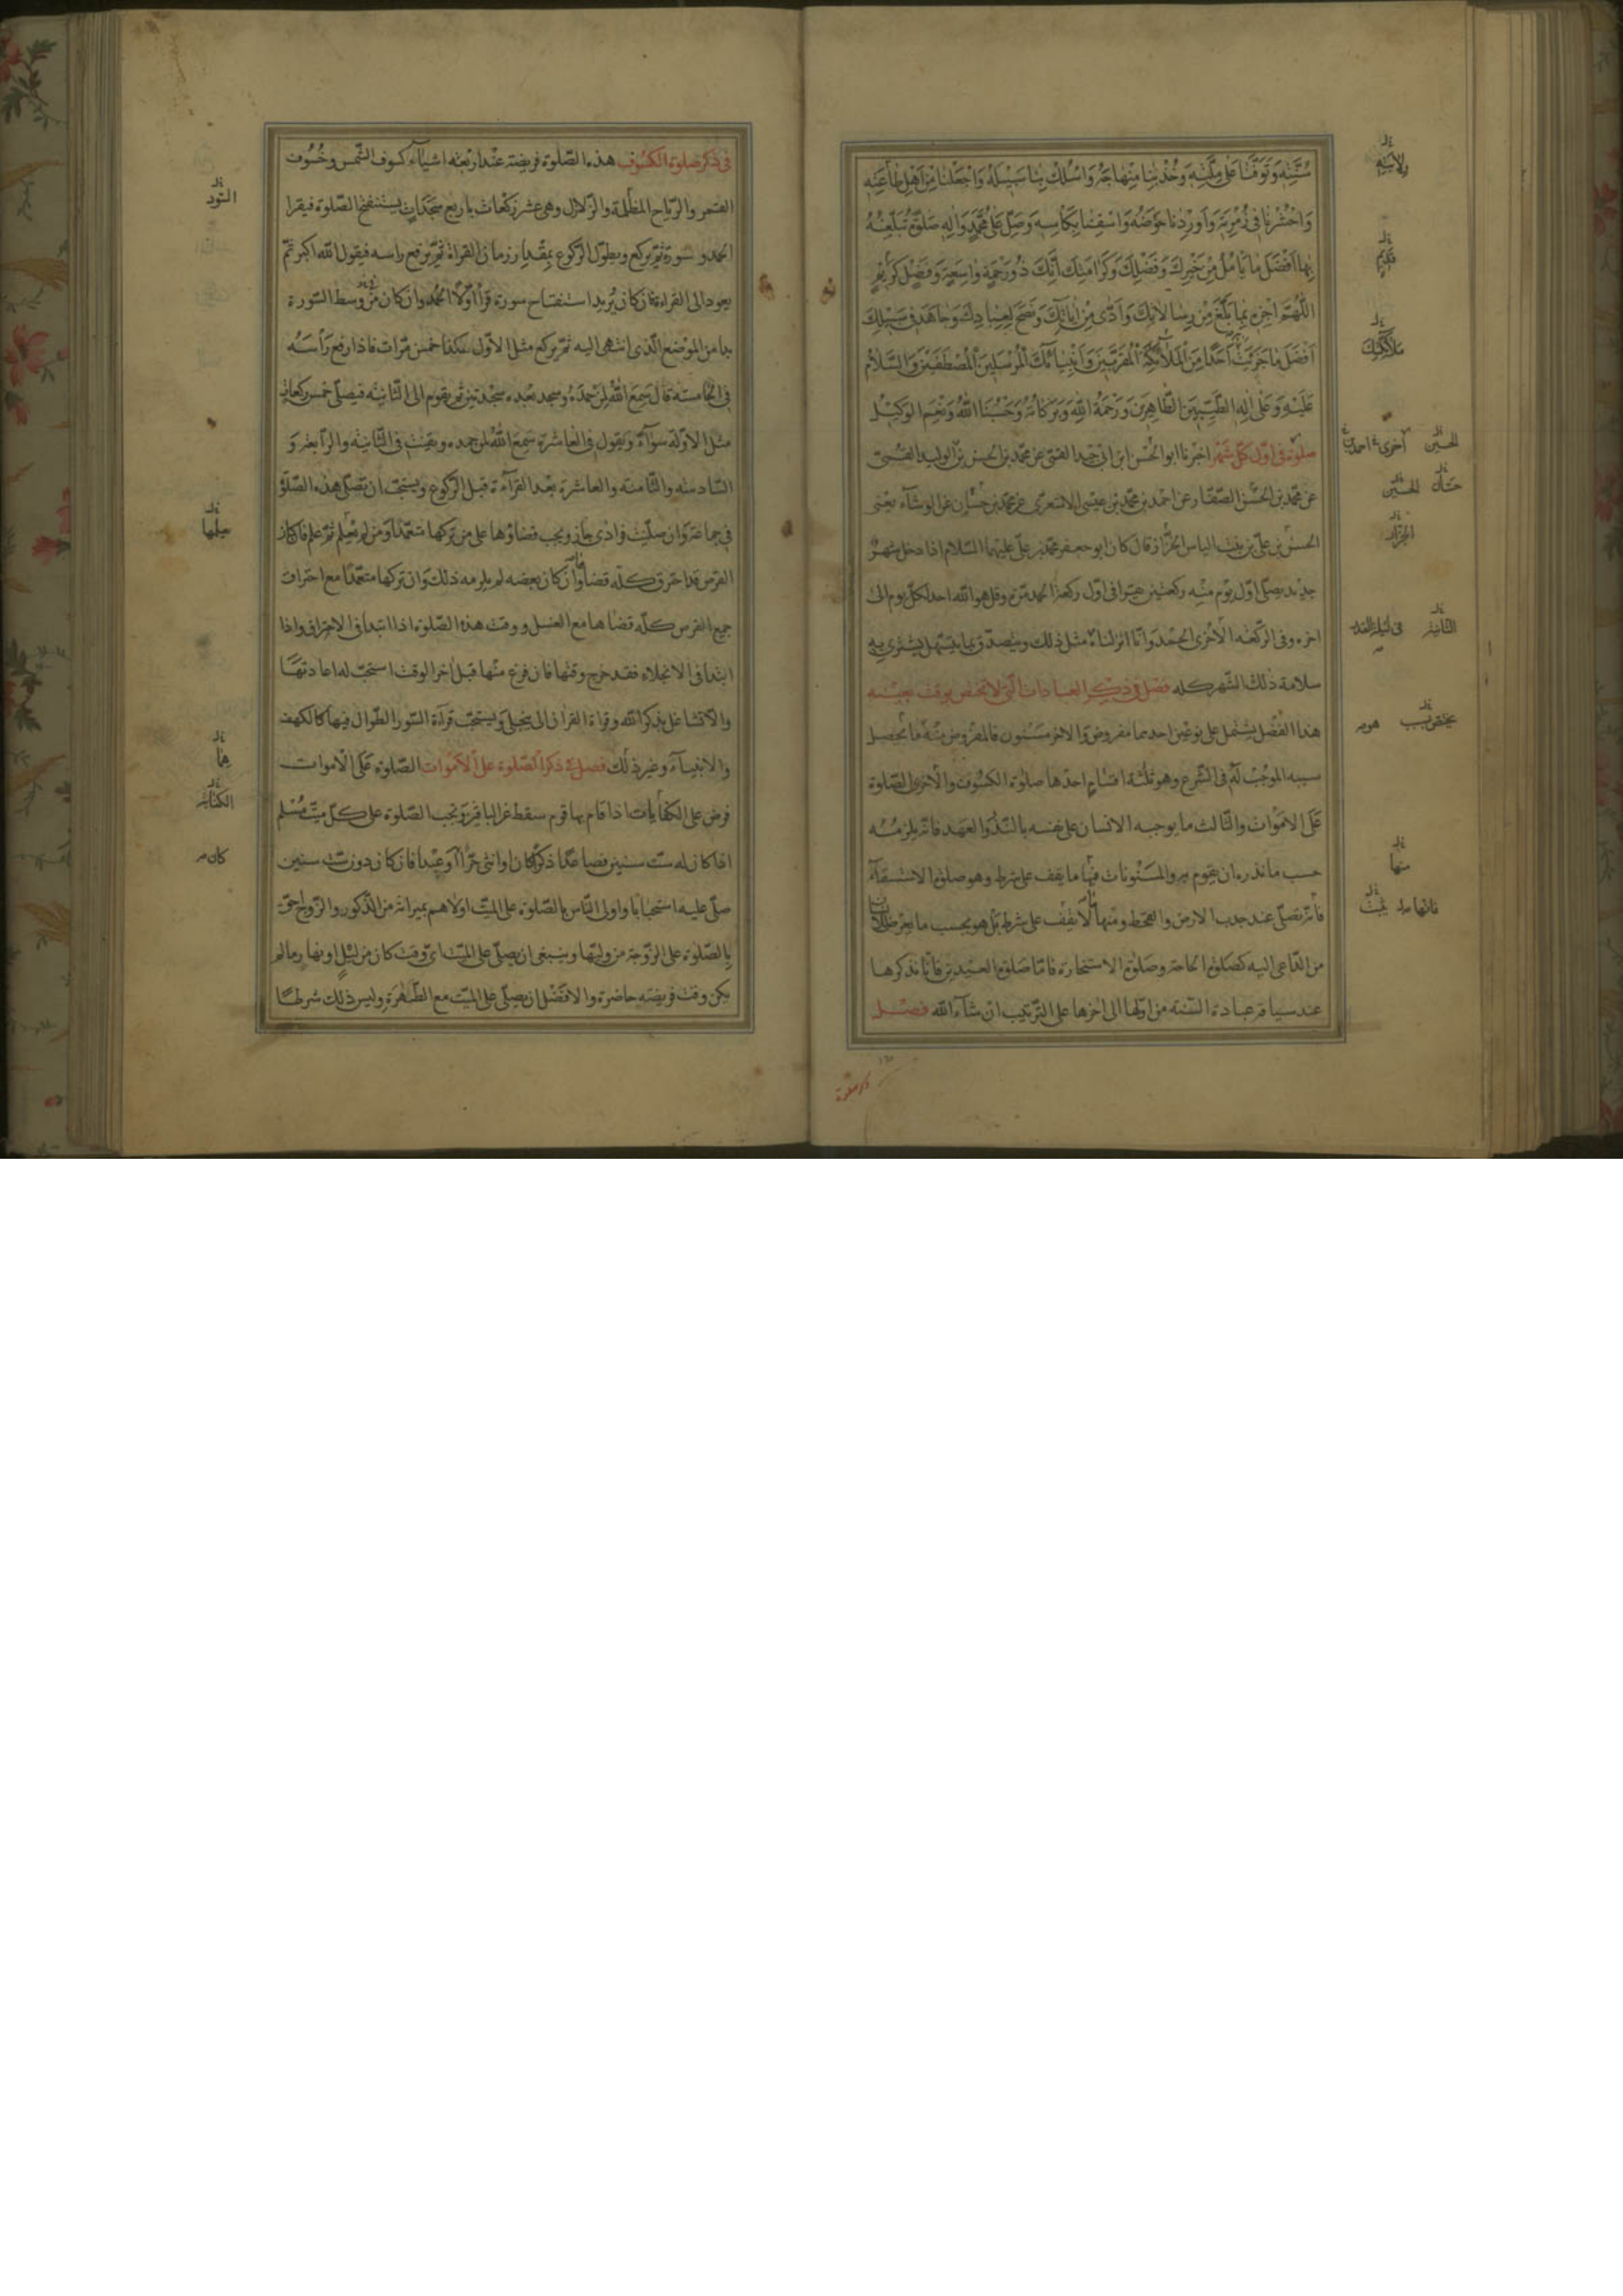 سُنَّتِهِ وَتَوَفَّنَا عَلَى مِلَّتِهِ وَخُذْ بِنَا مِنْهَاجَهُ وَاسْلُكْ بِنَا سَبِيلَهُ وَاجْعَلْنَا مِنْ اَهْلِ طَاعَتِهِ
وَاحْشُرْنَا فِي زُمْرَتِهِ وَاَوْرِدْنَا حَوْضَهُ وَاسْقِنَا بِكَأْسِهِ وَصَلِّ عَلَى مُحَمَّدٍ وَالِهِ صَلٰوةً تُبَلِّغُهُ
بِهَا اَفْضَلَ مَا يَأْمُلُ مِنْ خَيْرِكَ وَفَضْلِكَ وَكَرَامَتِكَ اِنَّكَ ذُو رَحْمَةٍ وَاسِعَةٍ وَفَضْلٍ كَرِيمٍ
اَللّٰهُمَّ اجْزِهِ بِمَا بَلَّغَ مِنْ رِسَالَاتِكَ وَاَدّٰى مِنْ اٰيَاتِكَ وَنَصَحَ لِعِبَادِكَ وَجَاهَدَ فِي سَبِيلِكَ
اَفْضَلَ مَا جَزَيْتَ اَحَدًا مِنَ الْمَلٰٓئِكَةِ الْمُقَرَّبِينَ وَاَنْبِيَآئِكَ الْمُرْسَلِينَ الْمُصْطَفَيْنَ وَالسَّلَامُ
عَلَيْهِ وَعَلَى اٰلِهِ الطَّيِّبِينَ الطَّاهِرِينَ وَرَحْمَةُ اللّٰهِ وَبَرَكَاتُهُ وَحَسْبُنَا اللّٰهُ وَنِعْمَ الْوَكِيلُ
صلوة في اوّل كلّ شهر اخبرنا ابو الحسن ابن ابي جيد القمّي عن محمّد بن الحسن بن الوليد القمّي
عن محمّد بن الحسن الصّفّار وعن احمد بن محمّد بن عيسى الاشعري عن محمّد بن حسّان عن الوشّاء يعني
الحسن بن علي بن بنت الياس الخزّاز قال كان ابو جعفر محمّد بن علي عليهما السّلام اذا دخل شهر
جديد يصلّي اوّل يوم منه ركعتين يقرا في اوّل ركعة الحمد مرّة وقل هو الله احد لكلّ يوم الى
اخره وفي الرّكعة الاخرى الحمد وانّا انزلناه مثل ذلك ويتصدّق بما يتسهّل يشتري به
سلامة ذلك الشّهر كلّه فصل في ذكر العبادات الّتي لا تختصّ بوقت بعينه
هذا الفصل يشتمل على نوعين احدهما مفروض والاخر مسنون فالمفروض منه ما يحصل
سببه الموجب له في الشّرع وهو ثلثة اقسام احدها صلوة الكسوف والاخرى الصّلوة
على الاموات والثّالث ما يوجبه الانسان على نفسه بالنّذر والعهد فانّه يلزمه
حسب ما نذره ان يقوم به والمسنونات فيها ما يقف على شرط وهو صلوة الاستسقاء
فانّه تصلّى عند جدب الارض والقحط ومنها لا يقف على شرط بل هو بحسب ما يعرض للانسان
من الدّاعي اليه كصلوة الحاجة وصلوة الاستخارة فامّا صلوة العيدين فانّا نذكرها
عند سياقة عبادة السّنة من اوّلها الى اخرها على التّرتيب ان شاء الله فصل
في ذكر صلوة الكسوف هذه الصّلوة فريضة عند اربعة اشياء كسوف الشّمس وخسوف
القمر والرّياح المظلمة والزّلازل وهي عشر ركعات باربع سجدات يستفتح الصّلوة فيقرا
الحمد وسورة ثمّ يركع ويطوّل الرّكوع بمقدار زمان القراءة ثمّ يرفع راسه فيقول الله اكبر ثمّ
يعود الى القراءة فان كان يريد استفتاح سورة قرا اوّلا الحمد وان كان من وسط السّورة
بدا من الموضع الّذي انتهى اليه ثمّ يركع مثل الاوّل هكذا خمس مرّات فاذا رفع راسه
في الخامسة قال سمع الله لمن حمده وسجد بعده سجدتين ثمّ يقوم الى الثّانية فيصلّي خمس ركعات
مثل الاوّلة سواء ويقول في العاشرة سمع الله لمن حمده ويقنت في الثّانية والرّابعة و
السّادسة والثّامنة والعاشرة بعد القراءة قبل الرّكوع ويستحبّ ان تصلّى هذه الصّلوة
في جماعة وان صلّيت فرادى جاز ويجب قضاؤها على من تركها متعمّدا ومن لم يعلم ثمّ علم فان كان
القرص قد احترق كلّه قضاها وان كان بعضه لم يلزمه ذلك وان تركها متعمّدا مع احتراق
جميع القرص كلّه قضاها مع الغسل ووقت هذه الصّلوة اذا ابتدا في الاحتراق واذا
ابتدا في الانجلاء فقد خرج وقتها فان فرغ منها قبل اخر الوقت استحبّ له اعادتها
والّا تشاغل بذكر الله وقراءة القران الى ينجلي ويستحبّ قراءة السّور الطّوال فيها كالكهف
والانبياء وغير ذلك فصل في ذكر الصّلوة على الاموات الصّلوة على الاموات
فرض على الكفايات اذا قام بها قوم سقط عن الباقين وتجب الصّلوة على كلّ ميّت مسلم
اذا كان له ستّ سنين فصاعدا ذكرا كان او انثى حرّا او عبدا فان كان دون ستّ سنين
صلّي عليه استحبابا واولى النّاس بالصّلوة على الميّت اولاهم بميراثه من الذّكور والزّوج احقّ
بالصّلوة على الزّوجة من وليّها وينبغي ان يصلّى على الميّت اي وقت كان من ليل او نهار ما لم
يكن وقت فريضة حاضرة والافضل ان يصلّي على الميّت مع الطّهارة وليس ذلك شرطا